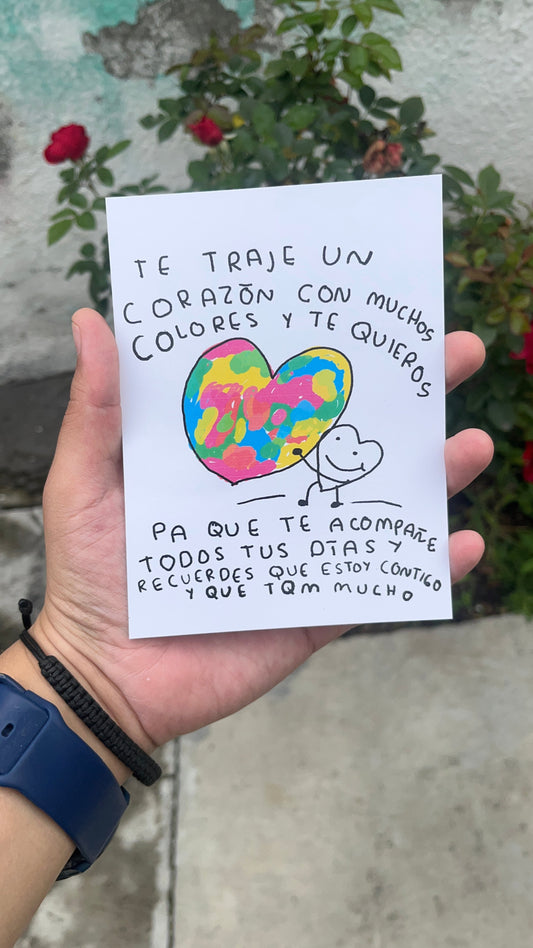 TE TRAJE UN
CORAZŌN CON MUCHOS
COLORES Y TE QUIEROS
PA QUE TE ACOMPAÑE
TODOS TUS DĪAS Y
RECUERDES QUE ESTOY CONTIGO
Y QUE TQM MUCHO